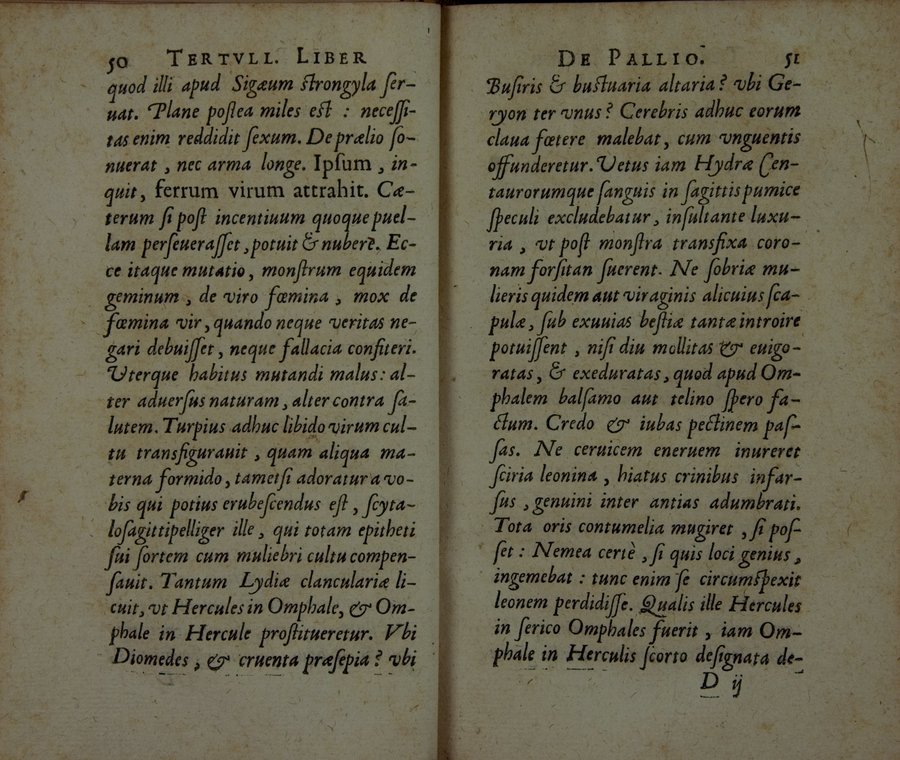 50 TERTVLL. LIBER
quod illi apud Sigæum ſtrongyla ſer-
uat. Plane poſtea miles eſt : neceſſi-
tas enim reddidit ſexum. De prælio ſo-
nuerat , nec arma longe. Ipſum , in-
quit, ferrum virum attrahit. Cæ-
terum ſi poſt incentiuum quoque puel-
lam perſeueraſſet, potuit & nubere. Ec-
ce itaque mutatio, monſtrum equidem
geminum , de viro fœmina , mox de
fœmina vir, quando neque veritas ne-
gari debuiſſet, neque fallacia confiteri.
Uterque habitus mutandi malus: al-
ter aduerſus naturam, alter contra ſa-
lutem. Turpius adhuc libido virum cul-
tu transfigurauit , quam aliqua ma-
terna formido, tametſi adoratur a vo-
bis qui potius erubeſcendus eſt, ſcyta-
loſagittipelliger ille, qui totam epitheti
ſui ſortem cum muliebri cultu compen-
ſauit. Tantum Lydiæ clanculariæ li-
cuit, vt Hercules in Omphale, & Om-
phale in Hercule proſtitueretur. Vbi
Diomedes , & cruenta præſepia? vbi
DE PALLIO. 51
Buſiris & buſtuaria altaria? vbi Ge-
ryon ter vnus? Cerebris adhuc eorum
claua fœtere malebat, cum vnguentis
offunderetur. Vetus iam Hydræ Cen-
taurorumque ſanguis in ſagittis pumice
ſpeculi excludebatur, inſultante luxu-
ria , vt poſt monſtra transfixa coro-
nam forſitan ſuerent. Ne ſobriæ mu-
lieris quidem aut viraginis alicuius ſca-
pulæ, ſub exuuias beſtiæ tantæ introire
potuiſſent , niſi diu mollitas & euigo-
ratas, & exeduratas, quod apud Om-
phalem balſamo aut telino ſpero fa-
ctum. Credo & iubas pectinem paſ-
ſas. Ne ceruicem eneruem inureret
ſciria leonina , hiatus crinibus infar-
ſus , genuini inter antias adumbrati.
Tota oris contumelia mugiret , ſi poſ-
ſet : Nemea certè , ſi quis loci genius ,
ingemebat : tunc enim ſe circumſpexit
leonem perdidiſſe. Qualis ille Hercules
in ſerico Omphales fuerit , iam Om-
phale in Herculis ſcorto deſignata de-
D ij